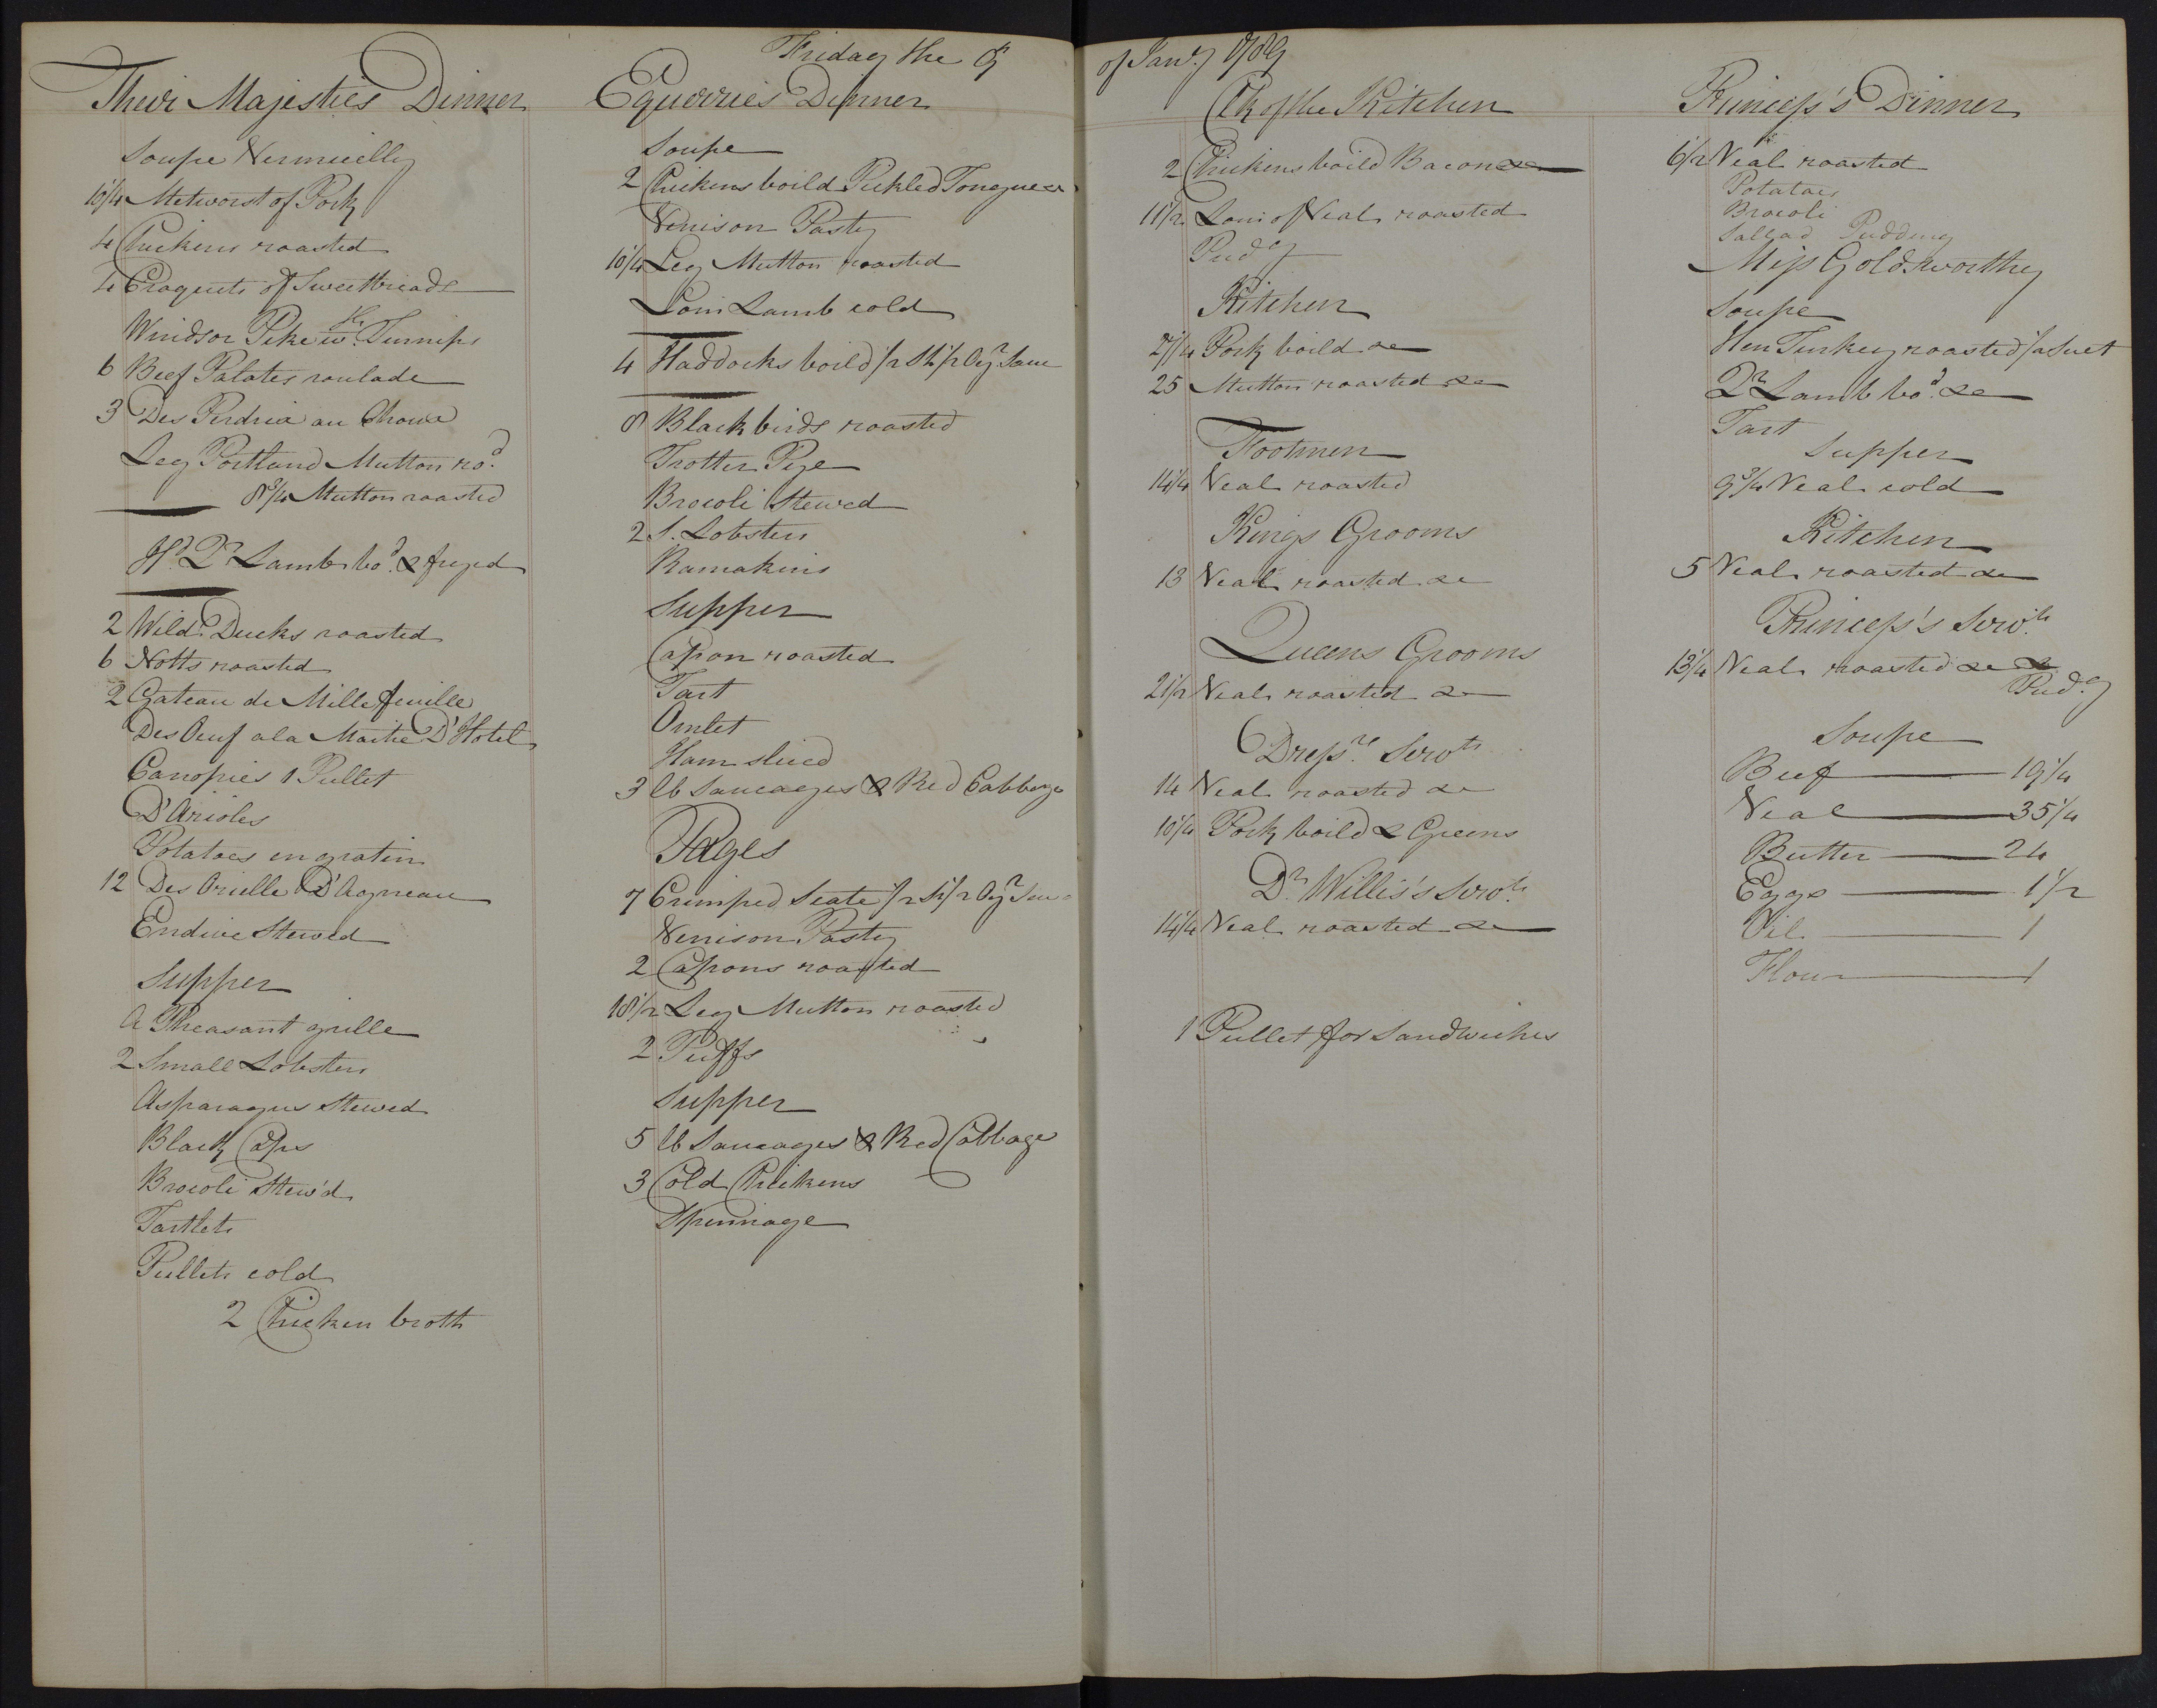 Friday the 9 of Janry 1789
Their Majesties Dinner
Soupe Vermicelly
10 1/4 Metworst of Pork
4 Chickens roasted
4 Croquets of Sweetbreads
Windsor Pike wth Turnips
6 Beef Palates roulade
3 Des Perdrix au Choux
Leg Portland Mutton rod
8 3/4 Mutton roasted
Hd Qr Lamb bod & fryed
2 Wild Ducks roasted
6 Notts roasted
2 Gateau de Mille feuille
Des Oeuf a la Maitre D'Hotel
Canopies 1 Pullet
D'Arioles
Potatoes en gratin
12 Des Orielle D'Agneau
Endive Stewed
Supper
A Pheasant grille
2 Small Lobsters
Asparagus Stewed
Black Caps
Brocoli Stew'd
Tartlets
Pullets cold
2 Chicken broth
Equerries Dinner
Soupe
2 Chickens boild Pickled Tongue &c
Venison Pasty
10 1/4 Leg Mutton roasted
Loin Lamb cold
4 Haddocks boild 1/2 Sh 1/2 Oyr Sauce
8 Black birds roasted
Trotter Pye
Brocoli Stewed
2 S. Lobsters
Ramakins
Supper
Capon roasted
Tart
Omlet
Ham sliced
3 lb Saucages & Red Cabbage
Pages
7 Crimped Scate 1/2 Sh 1/2 Oyr Sauce
Venison Pasty
2 Capons roasted
18 1/2 Leg Mutton roasted
2 Puffs
Supper
5 lb Saucages & Red Cabbage
3 Cold Chickens
Spinnage
Clk of the Kitchen
2 Chickens boild Bacon &c
11 1/2 Loin of Veal roasted
Pudg
Kitchen
27 1/4 Pork boild &c
25 Mutton roasted &c
Footmen
14 1/4 Veal roasted
Kings Grooms
13 Veal roasted &c
Queens Grooms
21 1/2 Veal roasted &c
Dressrs Servts
14 Veal roasted &c
10 1/4 Pork boild & Greens
Dr Willis's Servts
14 1/4 Veal roasted &c
1 Pullet for Sandwiches
Princess's Dinner
6 1/2 Veal roasted
Potatoes
Brocoli
Sallad Pudding
Miss Goldsworthy
Soupe
Hen Turkey roasted 1/2 Suet
Qr Lamb bod &c
Tart
Supper
9 3/4 Veal cold
Kitchen
5 Veal roasted &c
Princess's Servts
13 1/4 Veal roasted &c &
Pudg
Soupe
Beef 19 1/4
Veal 35 1/4
Butter 24
Eggs 1 1/2
Oil 1
Flour 1